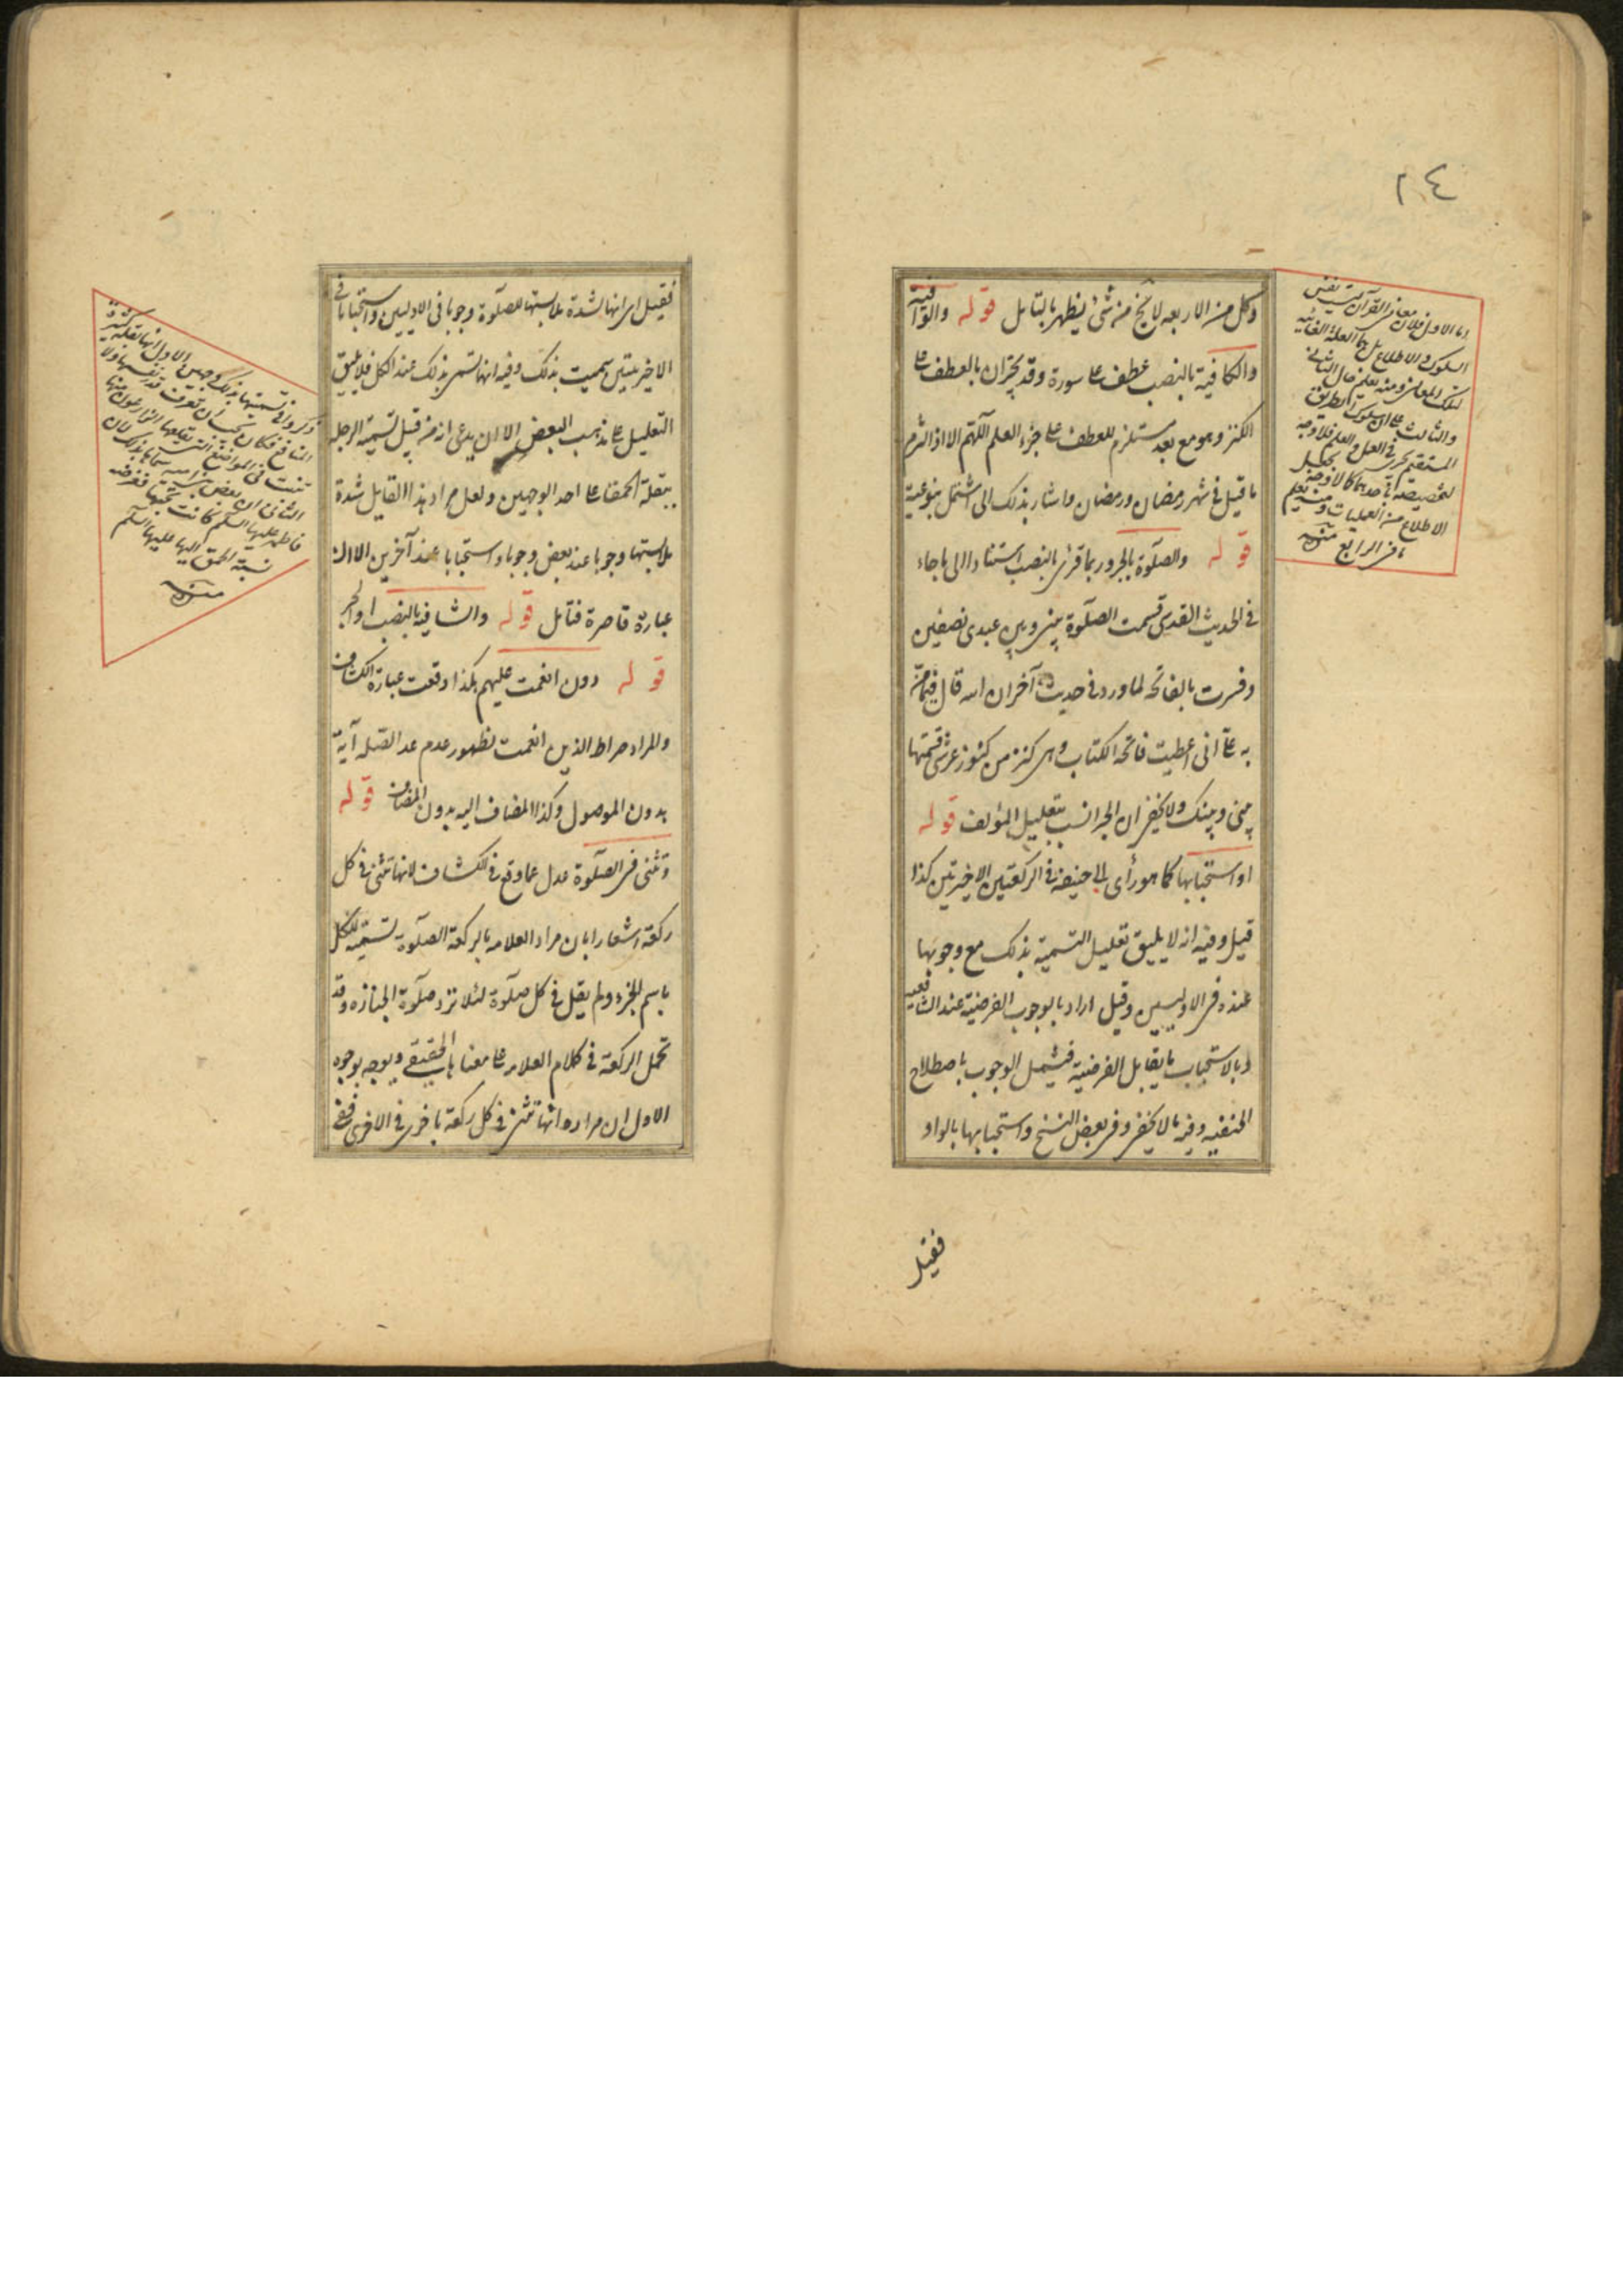 ٢٤
وكل من الاربعه لا يخ من شئ يظهر بالتامل قوله والوافية
والكافية بالنصب عطف على سورة وقد يجران بالعطف على
الكنز وهو مع بعده مستلزم للعطف على جزء العلم اللّهم الا اذا التزم
ما قيل في شهر رمضان ورمضان واشار بذلك الى
قوله والصلوة بالجر وربما قرئ بالنصب استنادا الى ما جاء
في الحديث القدسى قسمت الصلوة بينى وبين عبدى نصفين
وفسرت بالفاتحة لما ورد في حديث آخر ان الله قال فيما من
به على انى اعطيت فاتحة الكتاب وهى كنز من كنوز عرشى قسمتها
بينى وبينك ولا يخفى ان الجر انسب بتعليل المؤلف قوله
او استحبابها كما هو رأى ابى حنيفة في الركعتين الاخيرتين كذا
قيل وفيه انه لا يليق تعليل التسمية بذلك مع وجوبها
عنده فى الاوليين وقيل اراد بالوجوب الفرضية عند الشافعية
وبالاستحباب ما يقابل الفرضية فيشمل الوجوب باصطلاح
الحنفيه وفيه ما لا يخفى وفى بعض النسخ واستحبابها بالواو
فقيل
اما الاول فلان معانى القرآن ليست نفس
السلوك والاطلاع بل هما العلة الغائيه
لتلك المعانى ومنه يعلم حال الثانى
والثالث على ان سلوك الطريق
المستقيم يجرى فى العمل والعلم فلا وجه
لتخصيصه باحدهما كما لا وجه لجعل
الاطلاع من العمليات ومنه يعلم
ما فى الرابع منه
فقيل اى انها لشدة ملابستها للصلوة وجوبا فى الاوليين واستحبابا فى
الاخيرتين سميت بذلك وفيه انها تسمى بذلك عند الكل فلا يليق
التعليل على مذهب البعض الا ان يدعى انه من قبيل تسمية الرجله
ببقلة الحمقا على احد الوجهين ولعل مراد هذا القايل شدة
ملابستها وجوبا عند بعض وجوبا واستحبابا عند آخرين الا ان
عبارة قاصرة فتامل قوله والشافية بالنصب او الجر
قوله دون انعمت عليهم هكذا وقعت عبارة الكشاف
والمراد صراط الذين انعمت لظهور عدم عد الصله آية
بدون الموصول وكذا المضاف اليه بدون المضاف قوله
وتثنى فى الصلوة عدل عما وقع فى الكشاف لانها تثنى فى كل
ركعة اشعارا بان مراد العلامه بالركعة الصلوة تسمية للكل
باسم الجزء ولم يقل فى كل صلوة لئلا ترد صلوة الجنازه وقد
تحمل الركعة فى كلام العلامه على معناها الحقيقى ويوجه بوجوه
الاول ان مراده انها تثنى فى كل ركعة باخرى فى الاخرى ففى
ذكروا فى تسميتها بذلك وجهين الاول انها بقلة كثيرة
المنافع فكان يجب ان تعرف قدر نفسها ولا
تنبت فى المواضع التى يقلعها
الثانى ان بعض بنى اميه سماها بذلك لان
فاطمه عليها السلم كانت تحبها فغرضه
نسبة الحمق اليها عليها السلم
منه